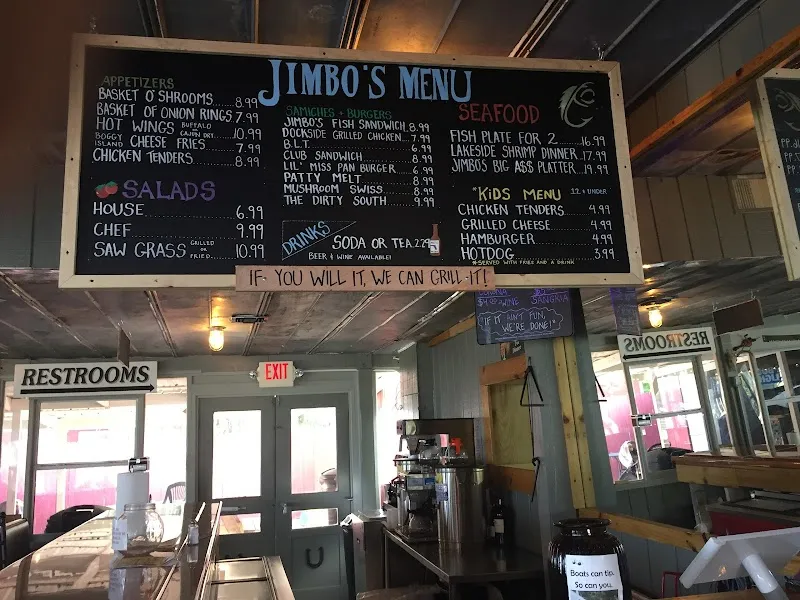 JIMBO'S MENU
APPETIZERS
BASKET O'SHROOMS....8.99
BASKET OF ONION RINGS 7.99
HOT WINGS BUFFALO OR CAJUN DRY.....10.99
BOGGY ISLAND CHEESE FRIES.......7.99
CHICKEN TENDERS..........8.99
SALADS
HOUSE...............6.99
CHEF...............9.99
SAW GRASS GRILLED OR FRIED....10.99
SAMICHES + BURGERS
JIMBO'S FISH SANDWICH.8.99
DOCKSIDE GRILLED CHICKEN..7.99
B.L.T..................6.99
CLUB SANDWICH..........8.99
LIL' MISS PAN BURGER....6.99
PATTY MELT............8.99
MUSHROOM SWISS.......8.99
THE DIRTY SOUTH.......9.99
DRINKS
SODA OR TEA.2.29
BEER & WINE AVAILABLE!
SEAFOOD
FISH PLATE FOR 2.....16.99
LAKESIDE SHRIMP DINNER..17.99
JIMBO'S BIG A$$ PLATTER..19.99
*KIDS MENU 12 + UNDER
CHICKEN TENDERS.......4.99
GRILLED CHEESE........4.99
HAMBURGER............4.99
HOTDOG...............3.99
*SERVED WITH FRIES AND A DRINK
IF YOU WILL IT, WE CAN GRILL IT!
SANGRIA
"IF IT AIN'T FUN,
WE'RE DONE!"
RESTROOMS
EXIT
RESTROOMS
Boats can tip.
So can you.